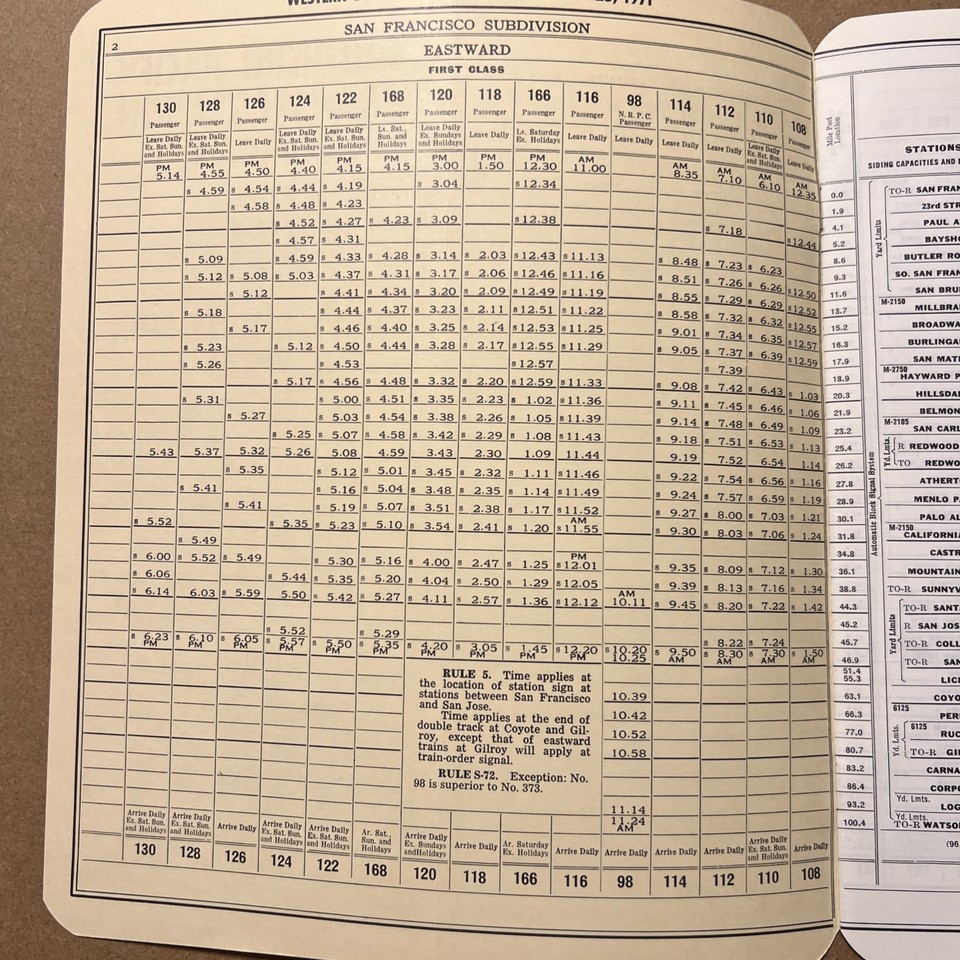 SAN FRANCISCO SUBDIVISION
2
EASTWARD
FIRST CLASS
130 128 126 124 122 168 120 118 166 116 98 114 112 110 108
Passenger Passenger Passenger Passenger Passenger Passenger Passenger Passenger Passenger Passenger N. R. P. C. Passenger Passenger Passenger Passenger Passenger
Leave Daily Ex. Sat. Sun. and Holidays Leave Daily Ex. Sat. Sun. and Holidays Leave Daily Leave Daily Ex. Sat. Sun. and Holidays Leave Daily Ex. Sat. Sun. and Holidays Lv. Sat., Sun. and Holidays Leave Daily Ex. Sundays and Holidays Leave Daily Lv. Saturday Ex. Holidays Leave Daily Leave Daily Leave Daily Leave Daily Leave Daily Ex. Sat. Sun. and Holidays Leave Daily
PM 5.14 PM 4.55 PM 4.50 PM 4.40 PM 4.15 PM 4.15 PM 3.00 PM 1.50 PM 12.30 AM 11.00 AM 8.35 AM 7.10 AM 6.10 AM 12.35
s 4.59 s 4.54 s 4.44 s 4.19 s 3.04 s 12.34
s 4.58 s 4.48 s 4.23
s 4.52 s 4.27 s 4.23 s 3.09 s 12.38 s 7.18
s 4.57 s 4.31 s 12.44
s 5.09 s 4.59 s 4.33 s 4.28 s 3.14 s 2.03 s 12.43 s 11.13 s 8.48 s 7.23 s 6.23
s 5.12 s 5.08 s 5.03 s 4.37 s 4.31 s 3.17 s 2.06 s 12.46 s 11.16 s 8.51 s 7.26 s 6.26 s 12.50
s 5.12 s 4.41 s 4.34 s 3.20 s 2.09 s 12.49 s 11.19 s 8.55 s 7.29 s 6.29 s 12.52
s 5.18 s 4.44 s 4.37 s 3.23 s 2.11 s 12.51 s 11.22 s 8.58 s 7.32 s 6.32 s 12.55
s 5.17 s 4.46 s 4.40 s 3.25 s 2.14 s 12.53 s 11.25 s 9.01 s 7.34 s 6.35 s 12.57
s 5.23 s 5.12 s 4.50 s 4.44 s 3.28 s 2.17 s 12.55 s 11.29 s 9.05 s 7.37 s 6.39 s 12.59
s 5.26 s 4.53 s 12.57 s 7.39
s 5.17 s 4.56 s 4.48 s 3.32 s 2.20 s 12.59 s 11.33 s 9.08 s 7.42 s 6.43 s 1.03
s 5.31 s 5.00 s 4.51 s 3.35 s 2.23 s 1.02 s 11.36 s 9.11 s 7.45 s 6.46 s 1.06
s 5.27 s 5.03 s 4.54 s 3.38 s 2.26 s 1.05 s 11.39 s 9.14 s 7.48 s 6.49 s 1.09
s 5.25 s 5.07 s 4.58 s 3.42 s 2.29 s 1.08 s 11.43 s 9.18 s 7.51 s 6.53 s 1.13
5.43 5.37 5.32 5.26 5.08 4.59 3.43 2.30 1.09 11.44 9.19 7.52 6.54 1.14
s 5.35 s 5.12 s 5.01 s 3.45 s 2.32 s 1.11 s 11.46 s 9.22 s 7.54 s 6.56 s 1.16
s 5.41 s 5.16 s 5.04 s 3.48 s 2.35 s 1.14 s 11.49 s 9.24 s 7.57 s 6.59 s 1.19
s 5.41 s 5.19 s 5.07 s 3.51 s 2.38 s 1.17 s 11.52 s 9.27 s 8.00 s 7.03 s 1.21
s 5.52 s 5.35 s 5.23 s 5.10 s 3.54 s 2.41 s 1.20 AM s 11.55 s 9.30 s 8.03 s 7.06 s 1.24
s 5.49
s 6.00 s 5.52 s 5.49 s 5.30 s 5.16 s 4.00 s 2.47 s 1.25 PM s 12.01 s 9.35 s 8.09 s 7.12 s 1.30
s 6.06 s 5.44 s 5.35 s 5.20 s 4.04 s 2.50 s 1.29 s 12.05 s 9.39 s 8.13 s 7.16 s 1.34
s 6.14 6.03 s 5.59 5.50 s 5.42 s 5.27 s 4.11 s 2.57 s 1.36 s 12.12 AM 10.11 s 9.45 s 8.20 s 7.22 s 1.42
s 5.52 s 5.29 s 8.22 s 7.24
s 6.23 PM s 6.10 PM s 6.05 PM s 5.57 PM s 5.50 PM s 5.35 PM s 4.20 PM s 3.05 PM s 1.45 PM s 12.20 PM s 10.20 10.25 s 9.50 AM s 8.30 AM s 7.30 AM s 1.50 AM
RULE 5. Time applies at
the location of station sign at
stations between San Francisco
and San Jose.
Time applies at the end of
double track at Coyote and Gil-
roy, except that of eastward
trains at Gilroy will apply at
train-order signal.
RULE S-72. Exception: No.
98 is superior to No. 373.
10.39
10.42
10.52
10.58
11.14
11.24
AM
Arrive Daily Ex. Sat. Sun. and Holidays Arrive Daily Ex. Sat. Sun. and Holidays Arrive Daily Arrive Daily Ex. Sat. Sun. and Holidays Arrive Daily Ex. Sat. Sun. and Holidays Ar. Sat., Sun. and Holidays Arrive Daily Ex. Sundays and Holidays Arrive Daily Ar. Saturday Ex. Holidays Arrive Daily Arrive Daily Arrive Daily Arrive Daily Arrive Daily Ex. Sat. Sun. and Holidays Arrive Daily
130 128 126 124 122 168 120 118 166 116 98 114 112 110 108
Mile Post Location
STATIONS
SIDING CAPACITIES AND
Yard Limits
Automatic Block Signal System
0.0 TO-R SAN FRAN
1.9 23rd STR
4.1 PAUL A
5.2 BAYSH
8.6 BUTLER RO
9.3 SO. SAN FRAN
11.6 SAN BRU
13.7 M-2150 MILLBRA
15.2 BROADWA
16.3 BURLINGA
17.9 SAN MAT
18.9 M-2750 HAYWARD P
20.3 HILLSDA
21.9 BELMON
23.2 M-2105 SAN CARL
25.4 Yd. Lmts. R REDWOOD
26.2 TO REDWO
27.8 ATHERT
28.9 MENLO P
30.1 PALO AL
31.8 M-2150 CALIFORNIA
34.8 CASTR
36.1 MOUNTAIN
38.8 TO-R SUNNYV
44.3 Yard Limits TO-R SANT
45.2 R SAN JOS
45.7 TO-R COLL
46.9 TO-R SAN
51.4 LIC
55.3
63.1 COYO
66.3 6125 PER
77.0 Yd. Lmts. 6125 RUC
80.7 TO-R GI
83.2 CARNA
86.4 CORPO
93.2 Yd. Lmts. LOG
100.4 Yd. Lmts. TO-R WATSO
(96